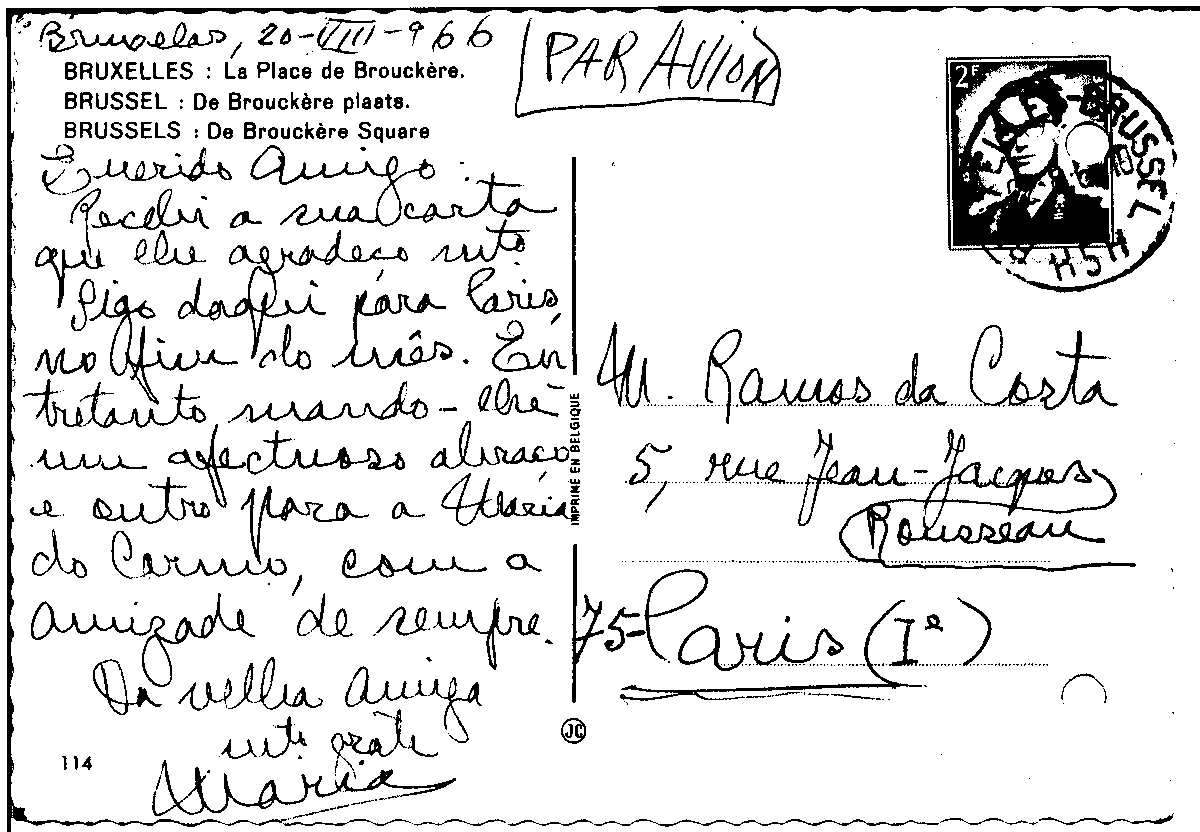 Bruxelas, 20-VIII-966
BRUXELLES : La Place de Brouckère.
BRUSSEL : De Brouckère plaats.
BRUSSELS : De Brouckère Square
Querido Amigo:
Recebi a sua carta
que lhe agradeço mtº
Sigo daqui para Paris,
no fim do mês. En
tretanto mando-lhe
um afectuoso abraço
e outro para a Maria
do Carmo, com a
amizade de sempre.
Da velha amiga
mtº grata
Maria
114
PAR AVION
IMPRIME EN BELGIQUE
JC
2F
BRUSSEL
M. Ramos da Costa
5, rue Jean-Jacques
Rousseau
75-Paris (Iº)